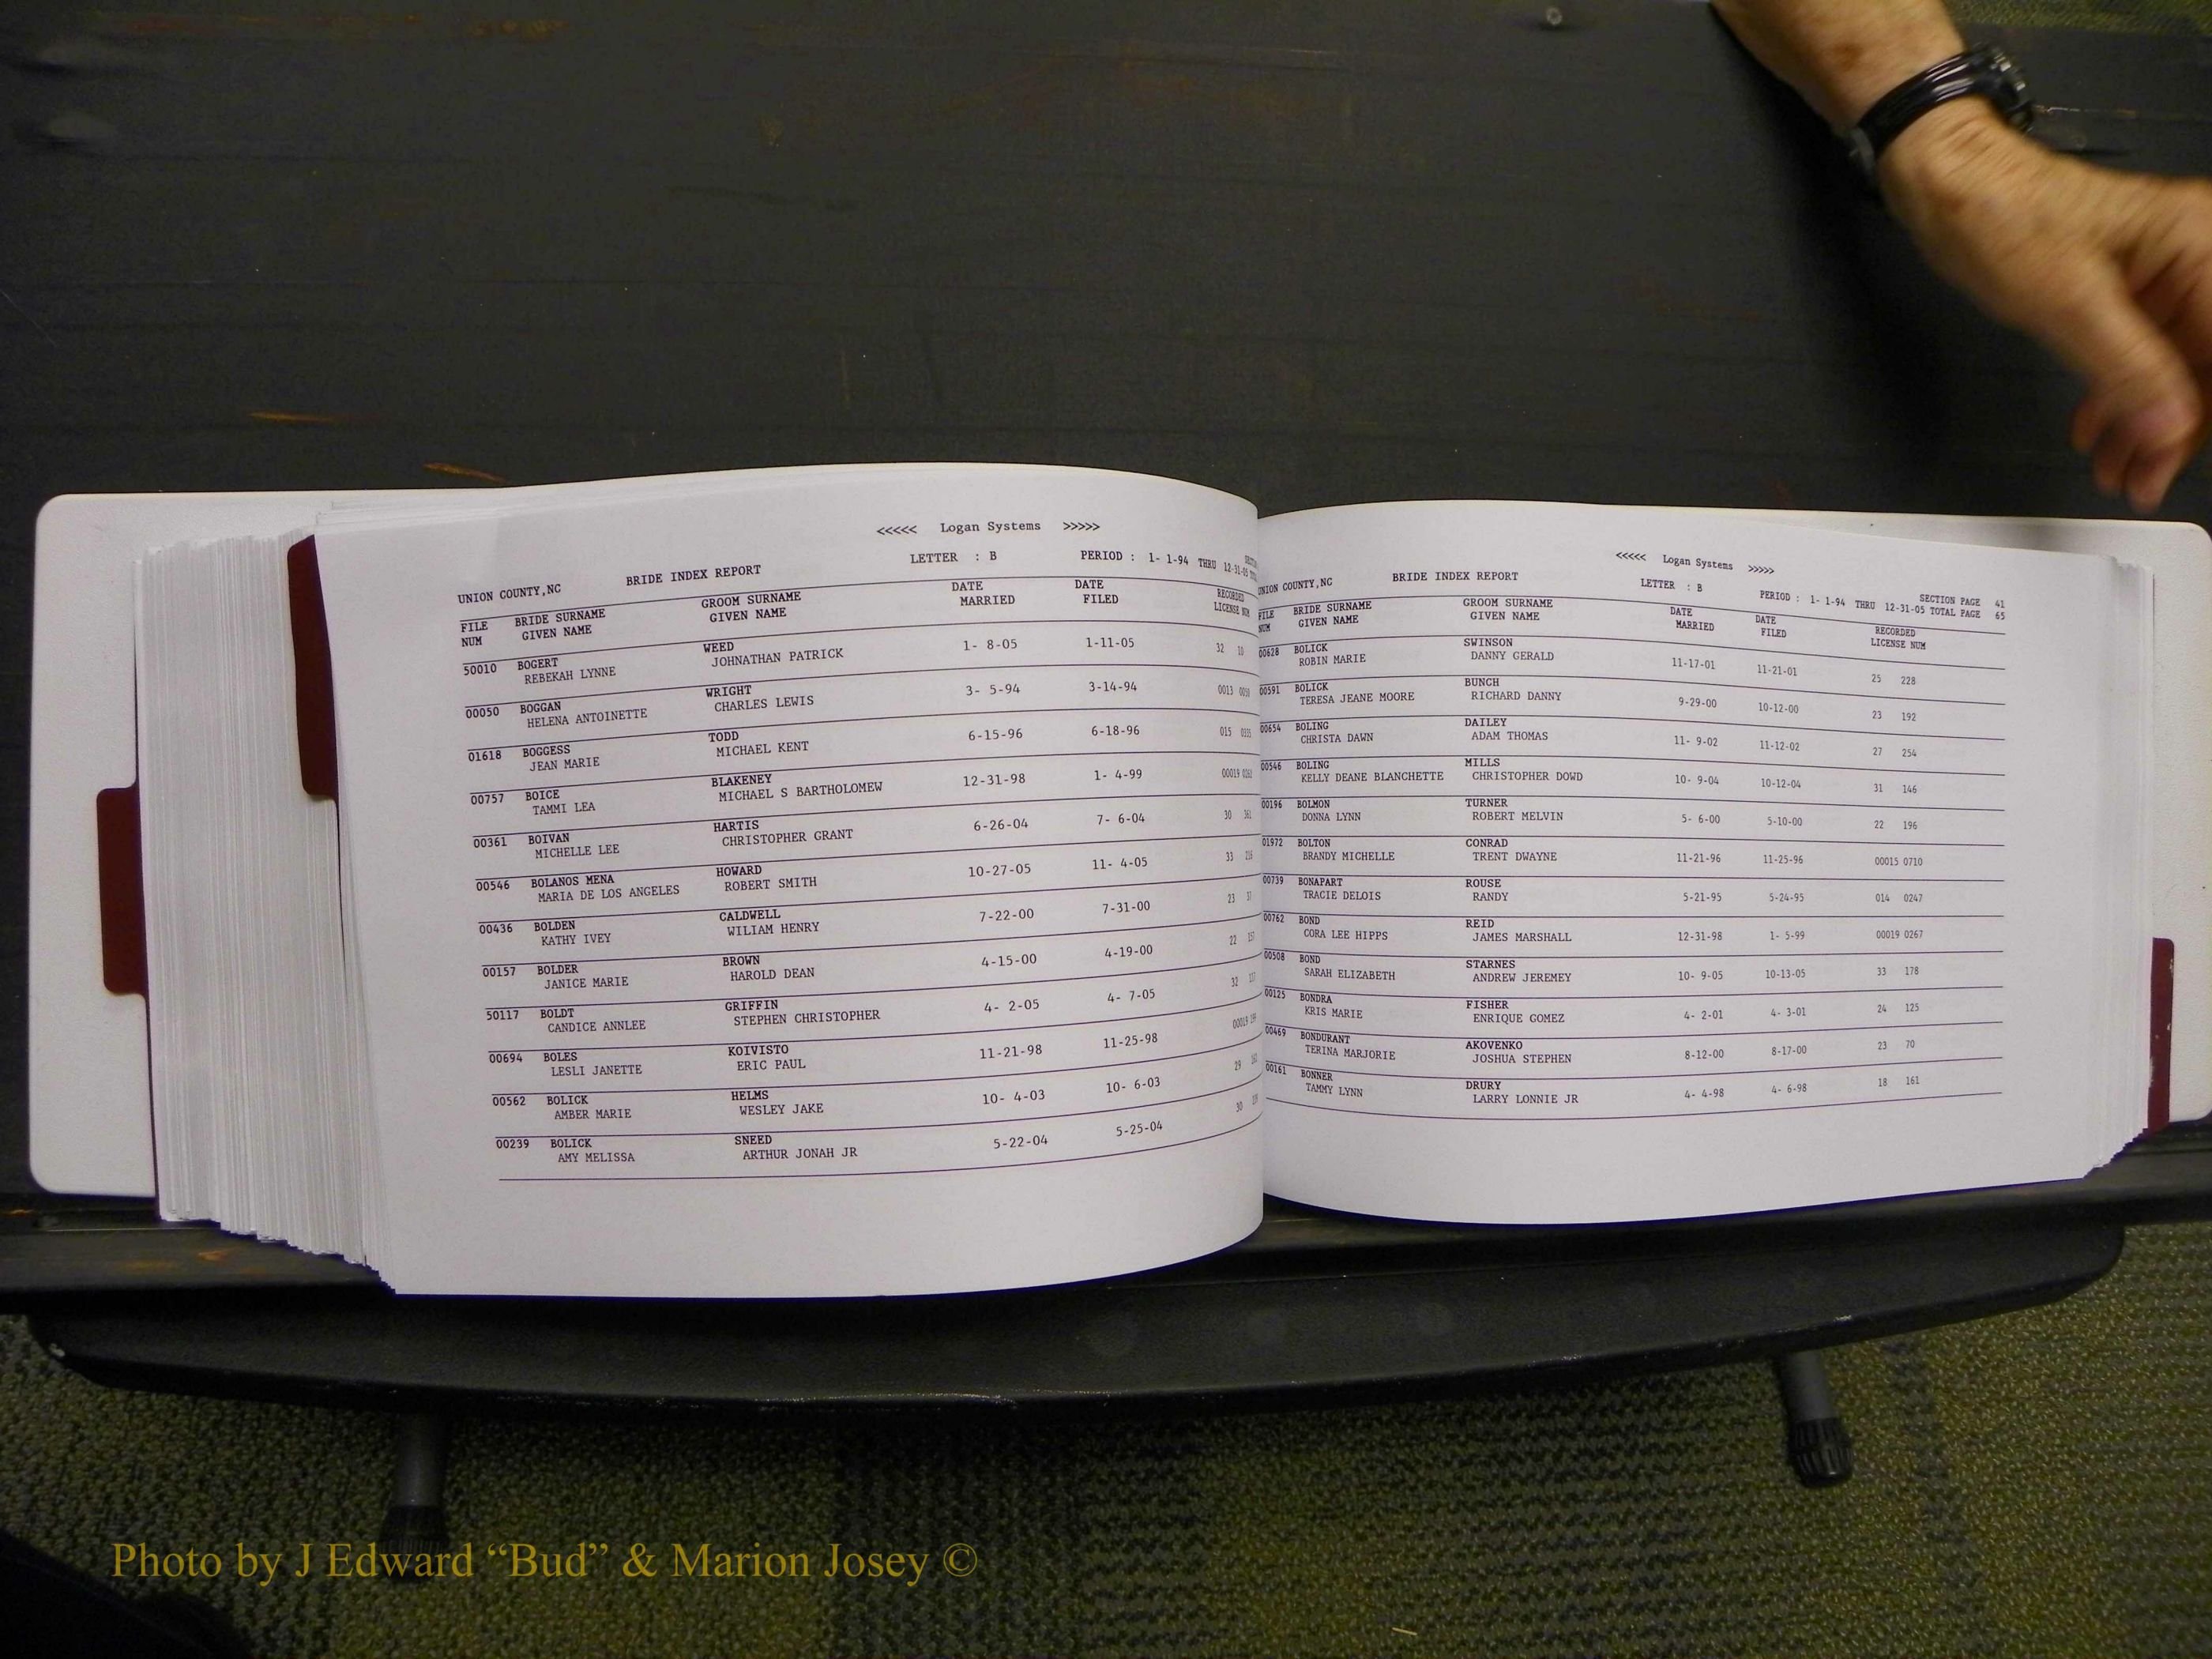 <<<<< Logan Systems >>>>>
UNION COUNTY,NC BRIDE INDEX REPORT LETTER : B PERIOD : 1- 1-94 THRU 12-31-05
FILE BRIDE SURNAME GROOM SURNAME DATE DATE RECORDED
NUM GIVEN NAME GIVEN NAME MARRIED FILED LICENSE NUM
50010 BOGERT WEED 1- 8-05 1-11-05 32 10
REBEKAH LYNNE JOHNATHAN PATRICK
00050 BOGGAN WRIGHT 3- 5-94 3-14-94 0013
HELENA ANTOINETTE CHARLES LEWIS
01618 BOGGESS TODD 6-15-96 6-18-96 015
JEAN MARIE MICHAEL KENT
00757 BOICE BLAKENEY 12-31-98 1- 4-99 00019
TAMMI LEA MICHAEL S BARTHOLOMEW
00361 BOIVAN HARTIS 6-26-04 7- 6-04 30
MICHELLE LEE CHRISTOPHER GRANT
00546 BOLANOS MENA HOWARD 10-27-05 11- 4-05 33
MARIA DE LOS ANGELES ROBERT SMITH
00436 BOLDEN CALDWELL 7-22-00 7-31-00 23
KATHY IVEY WILIAM HENRY
00157 BOLDER BROWN 4-15-00 4-19-00 22
JANICE MARIE HAROLD DEAN
50117 BOLDT GRIFFIN 4- 2-05 4- 7-05 32
CANDICE ANNLEE STEPHEN CHRISTOPHER
00694 BOLES KOIVISTO 11-21-98 11-25-98 00019
LESLI JANETTE ERIC PAUL
00562 BOLICK HELMS 10- 4-03 10- 6-03 29
AMBER MARIE WESLEY JAKE
00239 BOLICK SNEED 5-22-04 5-25-04 30
AMY MELISSA ARTHUR JONAH JR
<<<<< Logan Systems >>>>>
SECTION PAGE 41
UNION COUNTY,NC BRIDE INDEX REPORT LETTER : B PERIOD : 1- 1-94 THRU 12-31-05 TOTAL PAGE 65
FILE BRIDE SURNAME GROOM SURNAME DATE DATE RECORDED
NUM GIVEN NAME GIVEN NAME MARRIED FILED LICENSE NUM
00628 BOLICK SWINSON 11-17-01 11-21-01 25 228
ROBIN MARIE DANNY GERALD
00591 BOLICK BUNCH 9-29-00 10-12-00 23 192
TERESA JEANE MOORE RICHARD DANNY
00654 BOLING DAILEY 11- 9-02 11-12-02 27 254
CHRISTA DAWN ADAM THOMAS
00546 BOLING MILLS 10- 9-04 10-12-04 31 146
KELLY DEANE BLANCHETTE CHRISTOPHER DOWD
00196 BOLMON TURNER 5- 6-00 5-10-00 22 196
DONNA LYNN ROBERT MELVIN
01972 BOLTON CONRAD 11-21-96 11-25-96 00015 0710
BRANDY MICHELLE TRENT DWAYNE
00739 BONAPART ROUSE 5-21-95 5-24-95 014 0247
TRACIE DELOIS RANDY
00762 BOND REID 12-31-98 1- 5-99 00019 0267
CORA LEE HIPPS JAMES MARSHALL
00508 BOND STARNES 10- 9-05 10-13-05 33 178
SARAH ELIZABETH ANDREW JEREMEY
00125 BONDRA FISHER 4- 2-01 4- 3-01 24 125
KRIS MARIE ENRIQUE GOMEZ
00469 BONDURANT AKOVENKO 8-12-00 8-17-00 23 70
TERINA MARJORIE JOSHUA STEPHEN
00161 BONNER DRURY 4- 4-98 4- 6-98 18 161
TAMMY LYNN LARRY LONNIE JR
Photo by J Edward “Bud” & Marion Josey ©